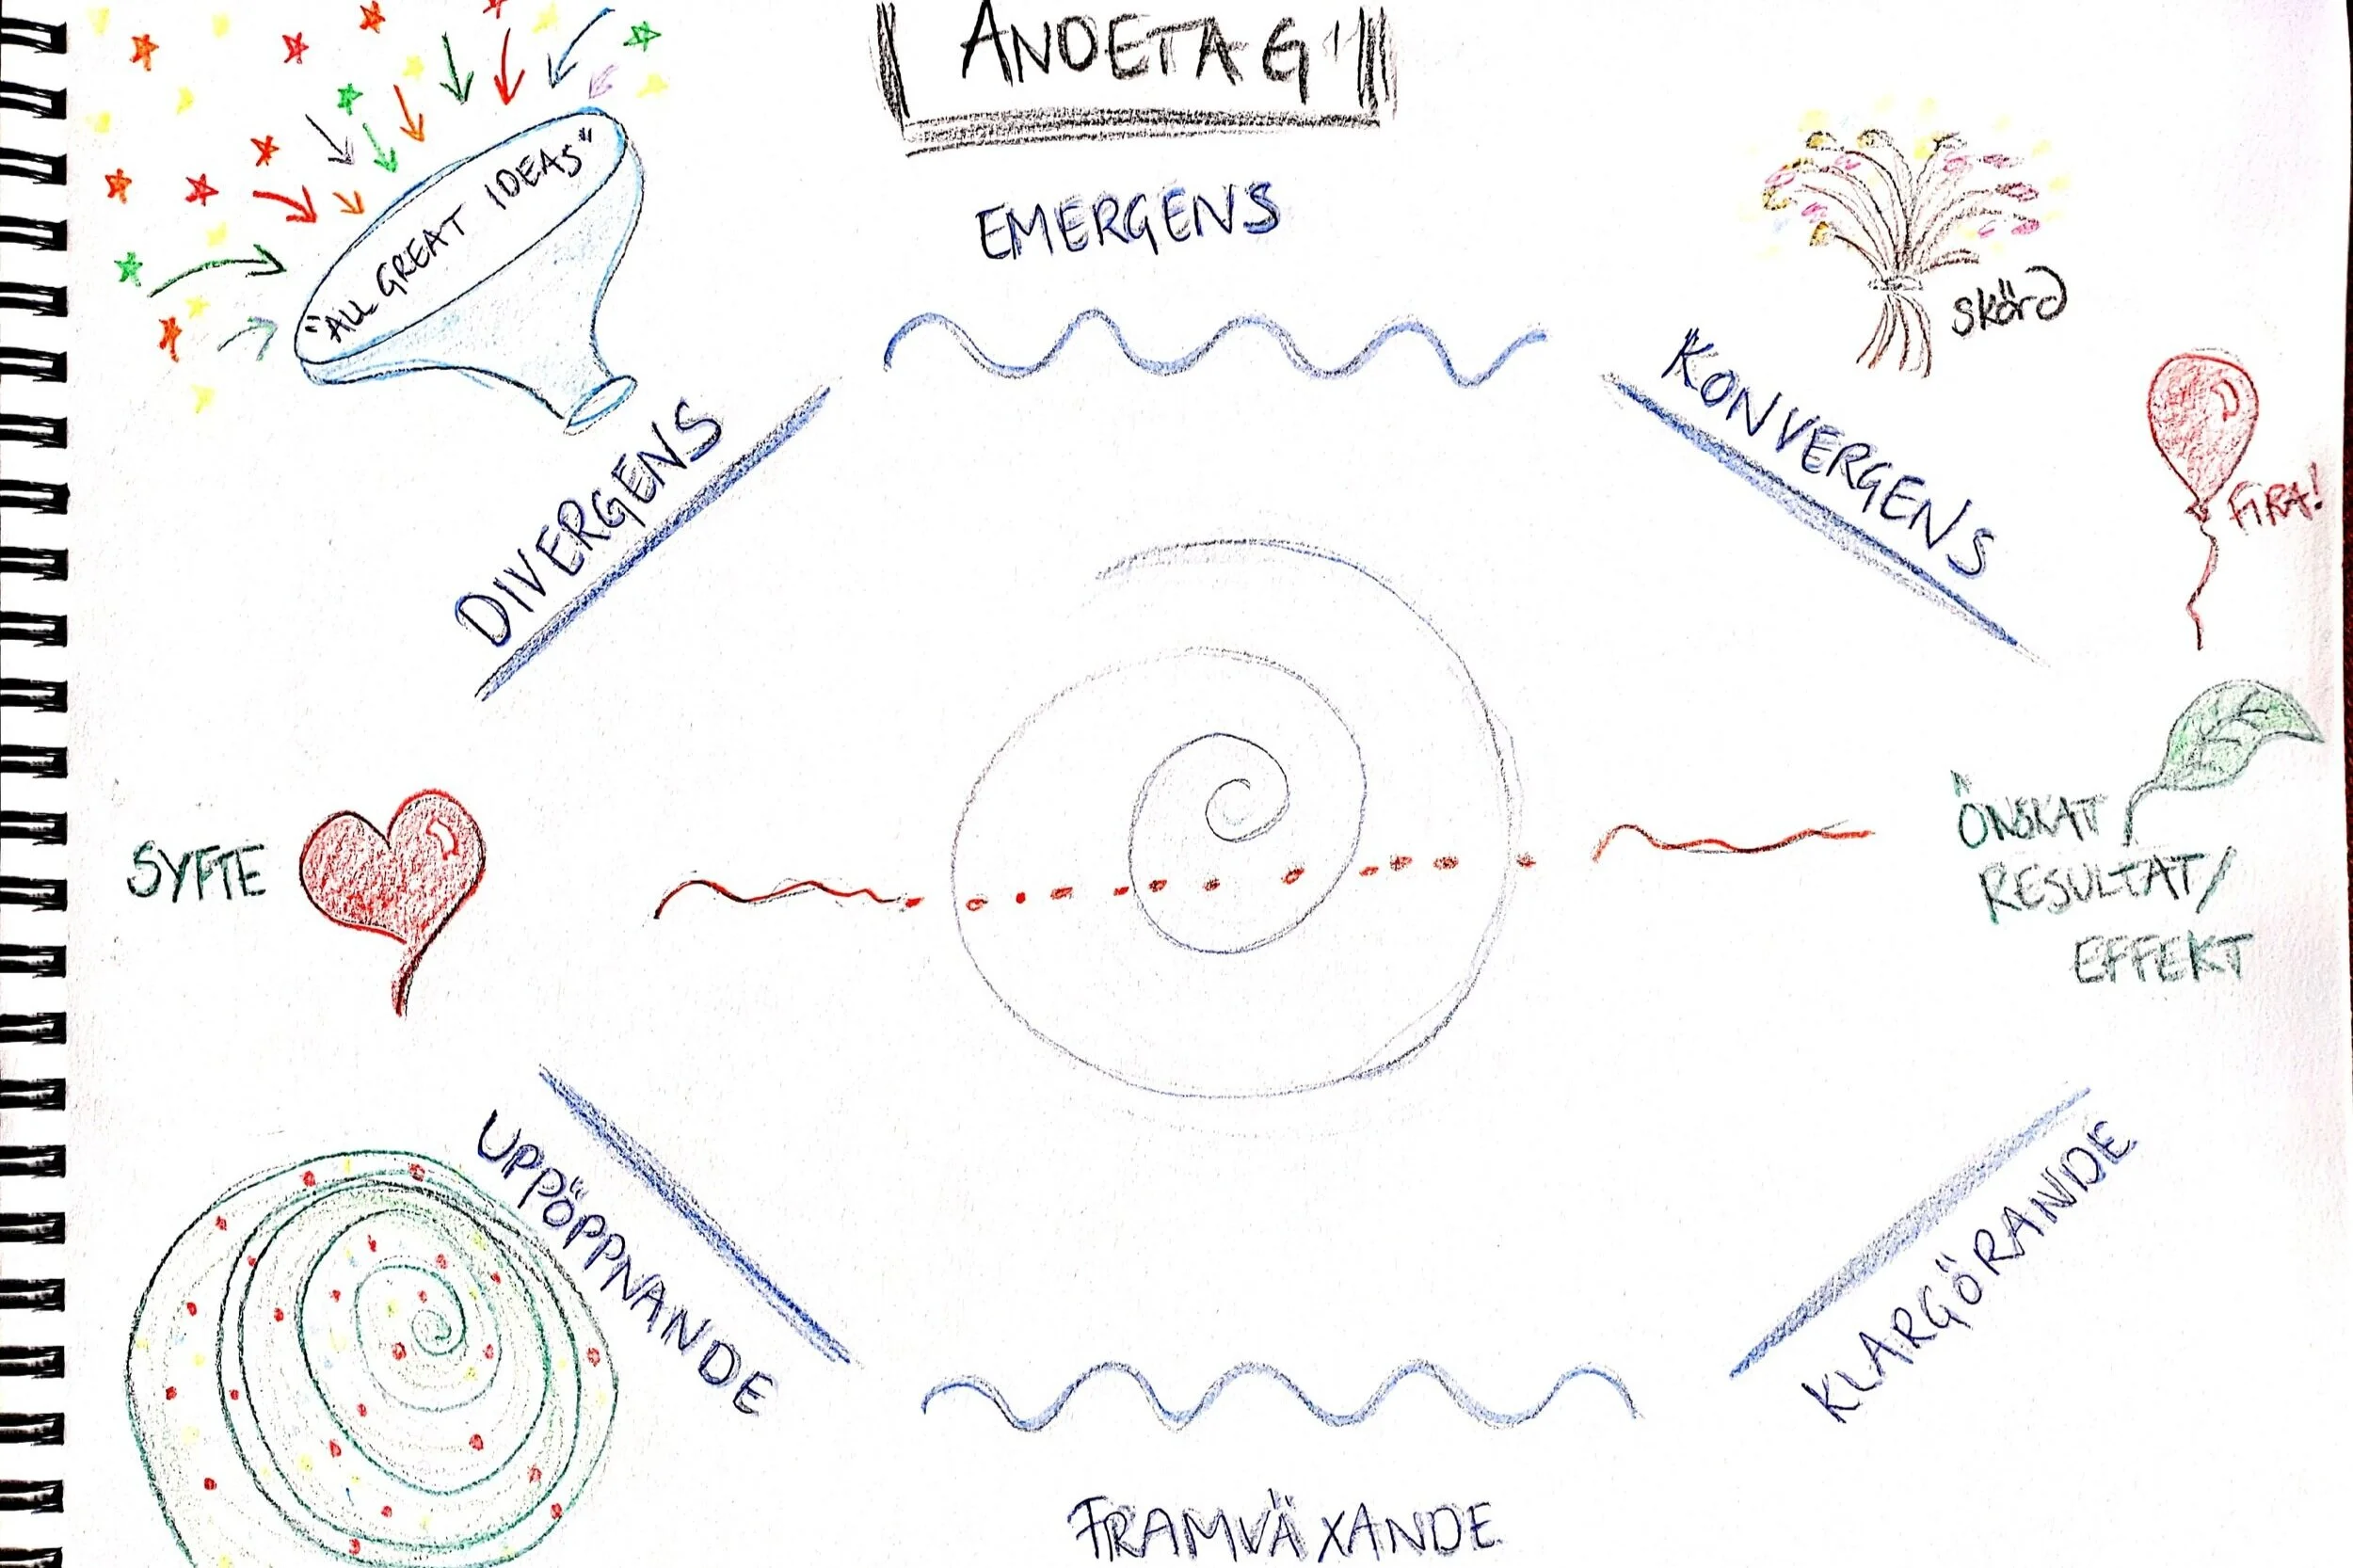 ANDETAG
"ALL GREAT IDEAS"
EMERGENS
skörd
DIVERGENS
KONVERGENS
FIRA!
SYFTE
ÖNSKAT
RESULTAT/
EFFEKT
UPPÖPPNANDE
KLARGÖRANDE
FRAMVÄXANDE